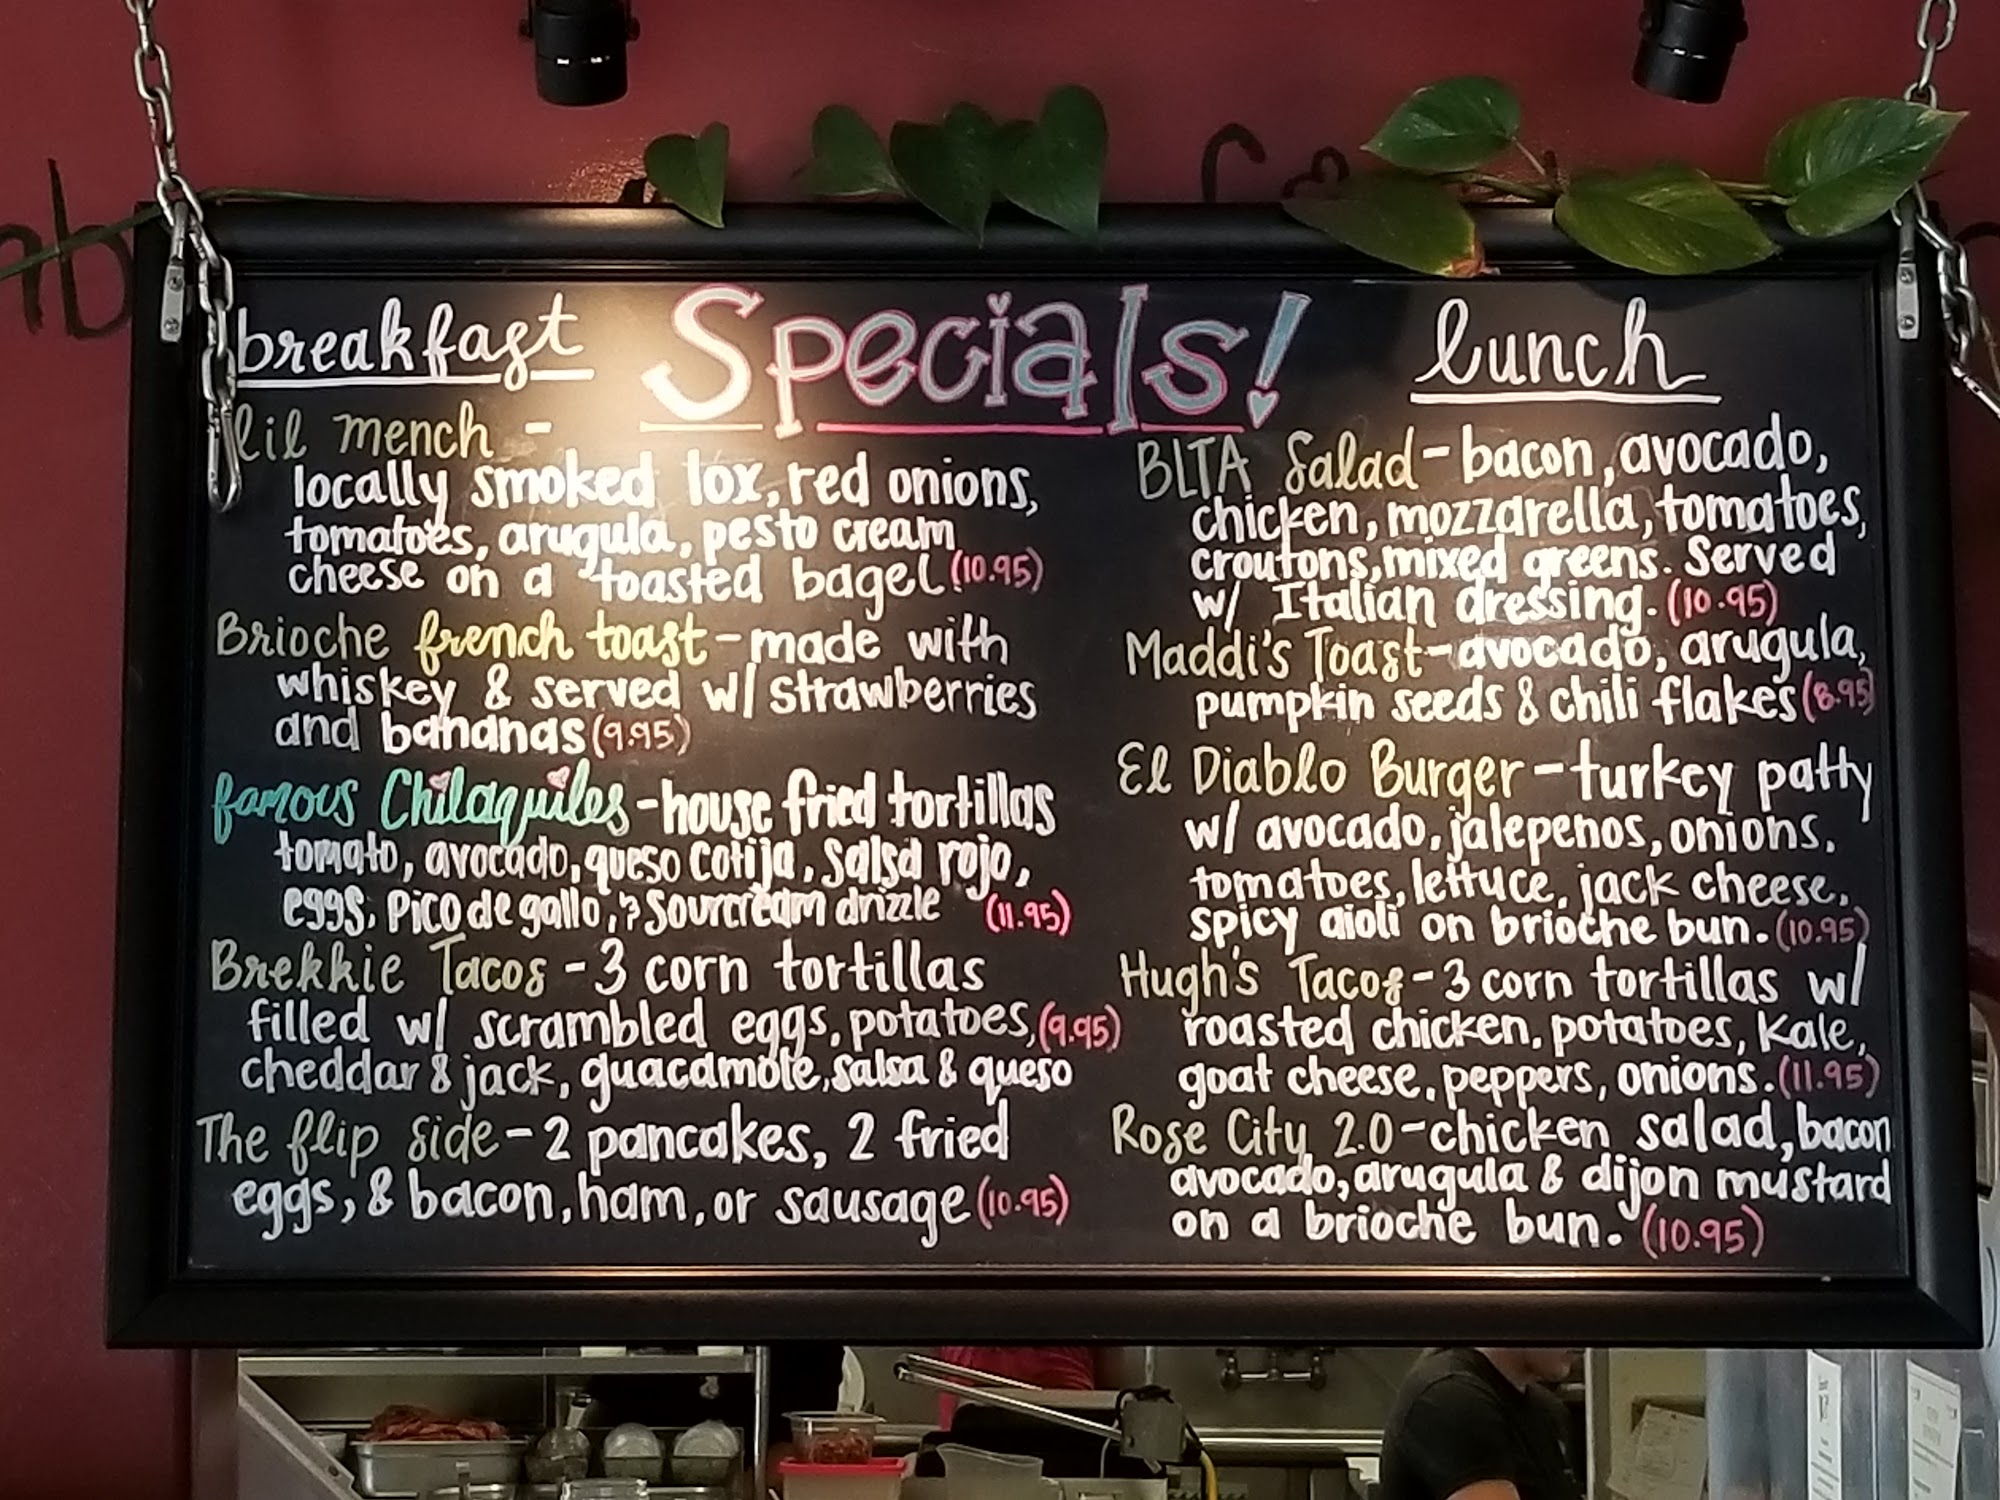 Specials!
breakfast
lil mench -
locally smoked lox, red onions,
tomatoes, arugula, pesto cream
cheese on a toasted bagel (10.95)
Brioche french toast - made with
whiskey & served w/ strawberries
and bananas (9.95)
famous Chilaquiles - house fried tortillas
tomato, avocado, queso cotija, salsa rojo,
eggs, pico de gallo, & sourcream drizzle (11.95)
Brekkie Tacos - 3 corn tortillas
filled w/ scrambled eggs, potatoes, (9.95)
cheddar & jack, guacamole, salsa & queso
The flip side - 2 pancakes, 2 fried
eggs, & bacon, ham, or sausage (10.95)
lunch
BLTA Salad - bacon, avocado,
chicken, mozzarella, tomatoes,
croutons, mixed greens. Served
w/ Italian dressing. (10.95)
Maddi's Toast - avocado, arugula,
pumpkin seeds & chili flakes (8.95)
El Diablo Burger - turkey patty
w/ avocado, jalepenos, onions,
tomatoes, lettuce, jack cheese,
spicy aioli on brioche bun. (10.95)
Hugh's Tacos - 3 corn tortillas w/
roasted chicken, potatoes, kale,
goat cheese, peppers, onions. (11.95)
Rose City 2.0 - chicken salad, bacon
avocado, arugula & dijon mustard
on a brioche bun. (10.95)